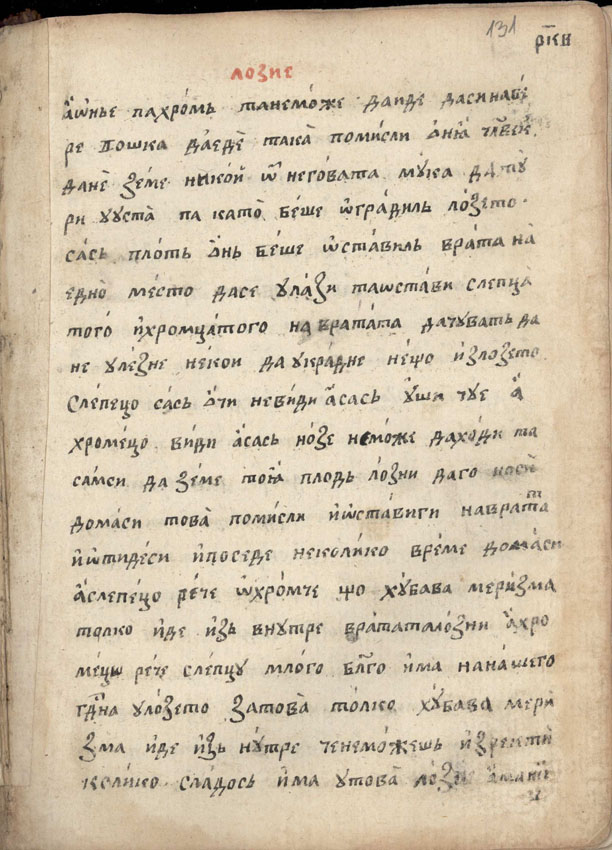 131
рк҃и
лозіе
а҆ѡ҆нье пахро́мь танемо́же даиде дасинабе́
ре пошка даꙗдѐ така̀ помисли ѻ҆нꙗ҆ чл҃векь
данѐ зе́ме никои ѿ негѡвата мꙋка да тꙋ
ри ꙋꙋста̀ па като̀ бе́ше ѡ҆гради́ль ло́зето
са́сь пло́ть ѻ҆нь бе́ше ѡ҆ста́виль врата на
едно̀ ме́сто дасе ꙋла́зи таѡстави слепца
того и҆хромца́того на врата́та дачꙋвать да
не ꙋле́зне некои да ꙋкра́дне не́що и҆зло́зето
слепецо са́сь ѻ҆чи неви́ди а҆са́сь ꙋ҆ши чꙋе а҆
хроме́цо види а҆са́сь но́зе не́може дахо́ди та
са́мси да зе́ме тоꙗ҆ плодь ло́зни даго носѝ
дома́си това̀ помисли и҆ѡ҆стави́ги на врата́та
и҆ѡ҆тиде́си и҆поседе неколико вре́ме дома́си
а҆слепе́цо ре́че ѡ҆хро́мче що хꙋ́бава мери́зма
толко и҆де и҆зь внꙋтре врататало́зни а҆хро
ме́цѡ рече слепцꙋ мло́го бл҃го и҆ма нана́шего
гд҃на ꙋло́зето затова̀ то́лко хꙋ́бава мери
зма и҆де и҆зь нꙋтре ченемо́жешь и҆зректи
коли́ко сла́дось и҆ма ꙋтова̀ ло́зіе